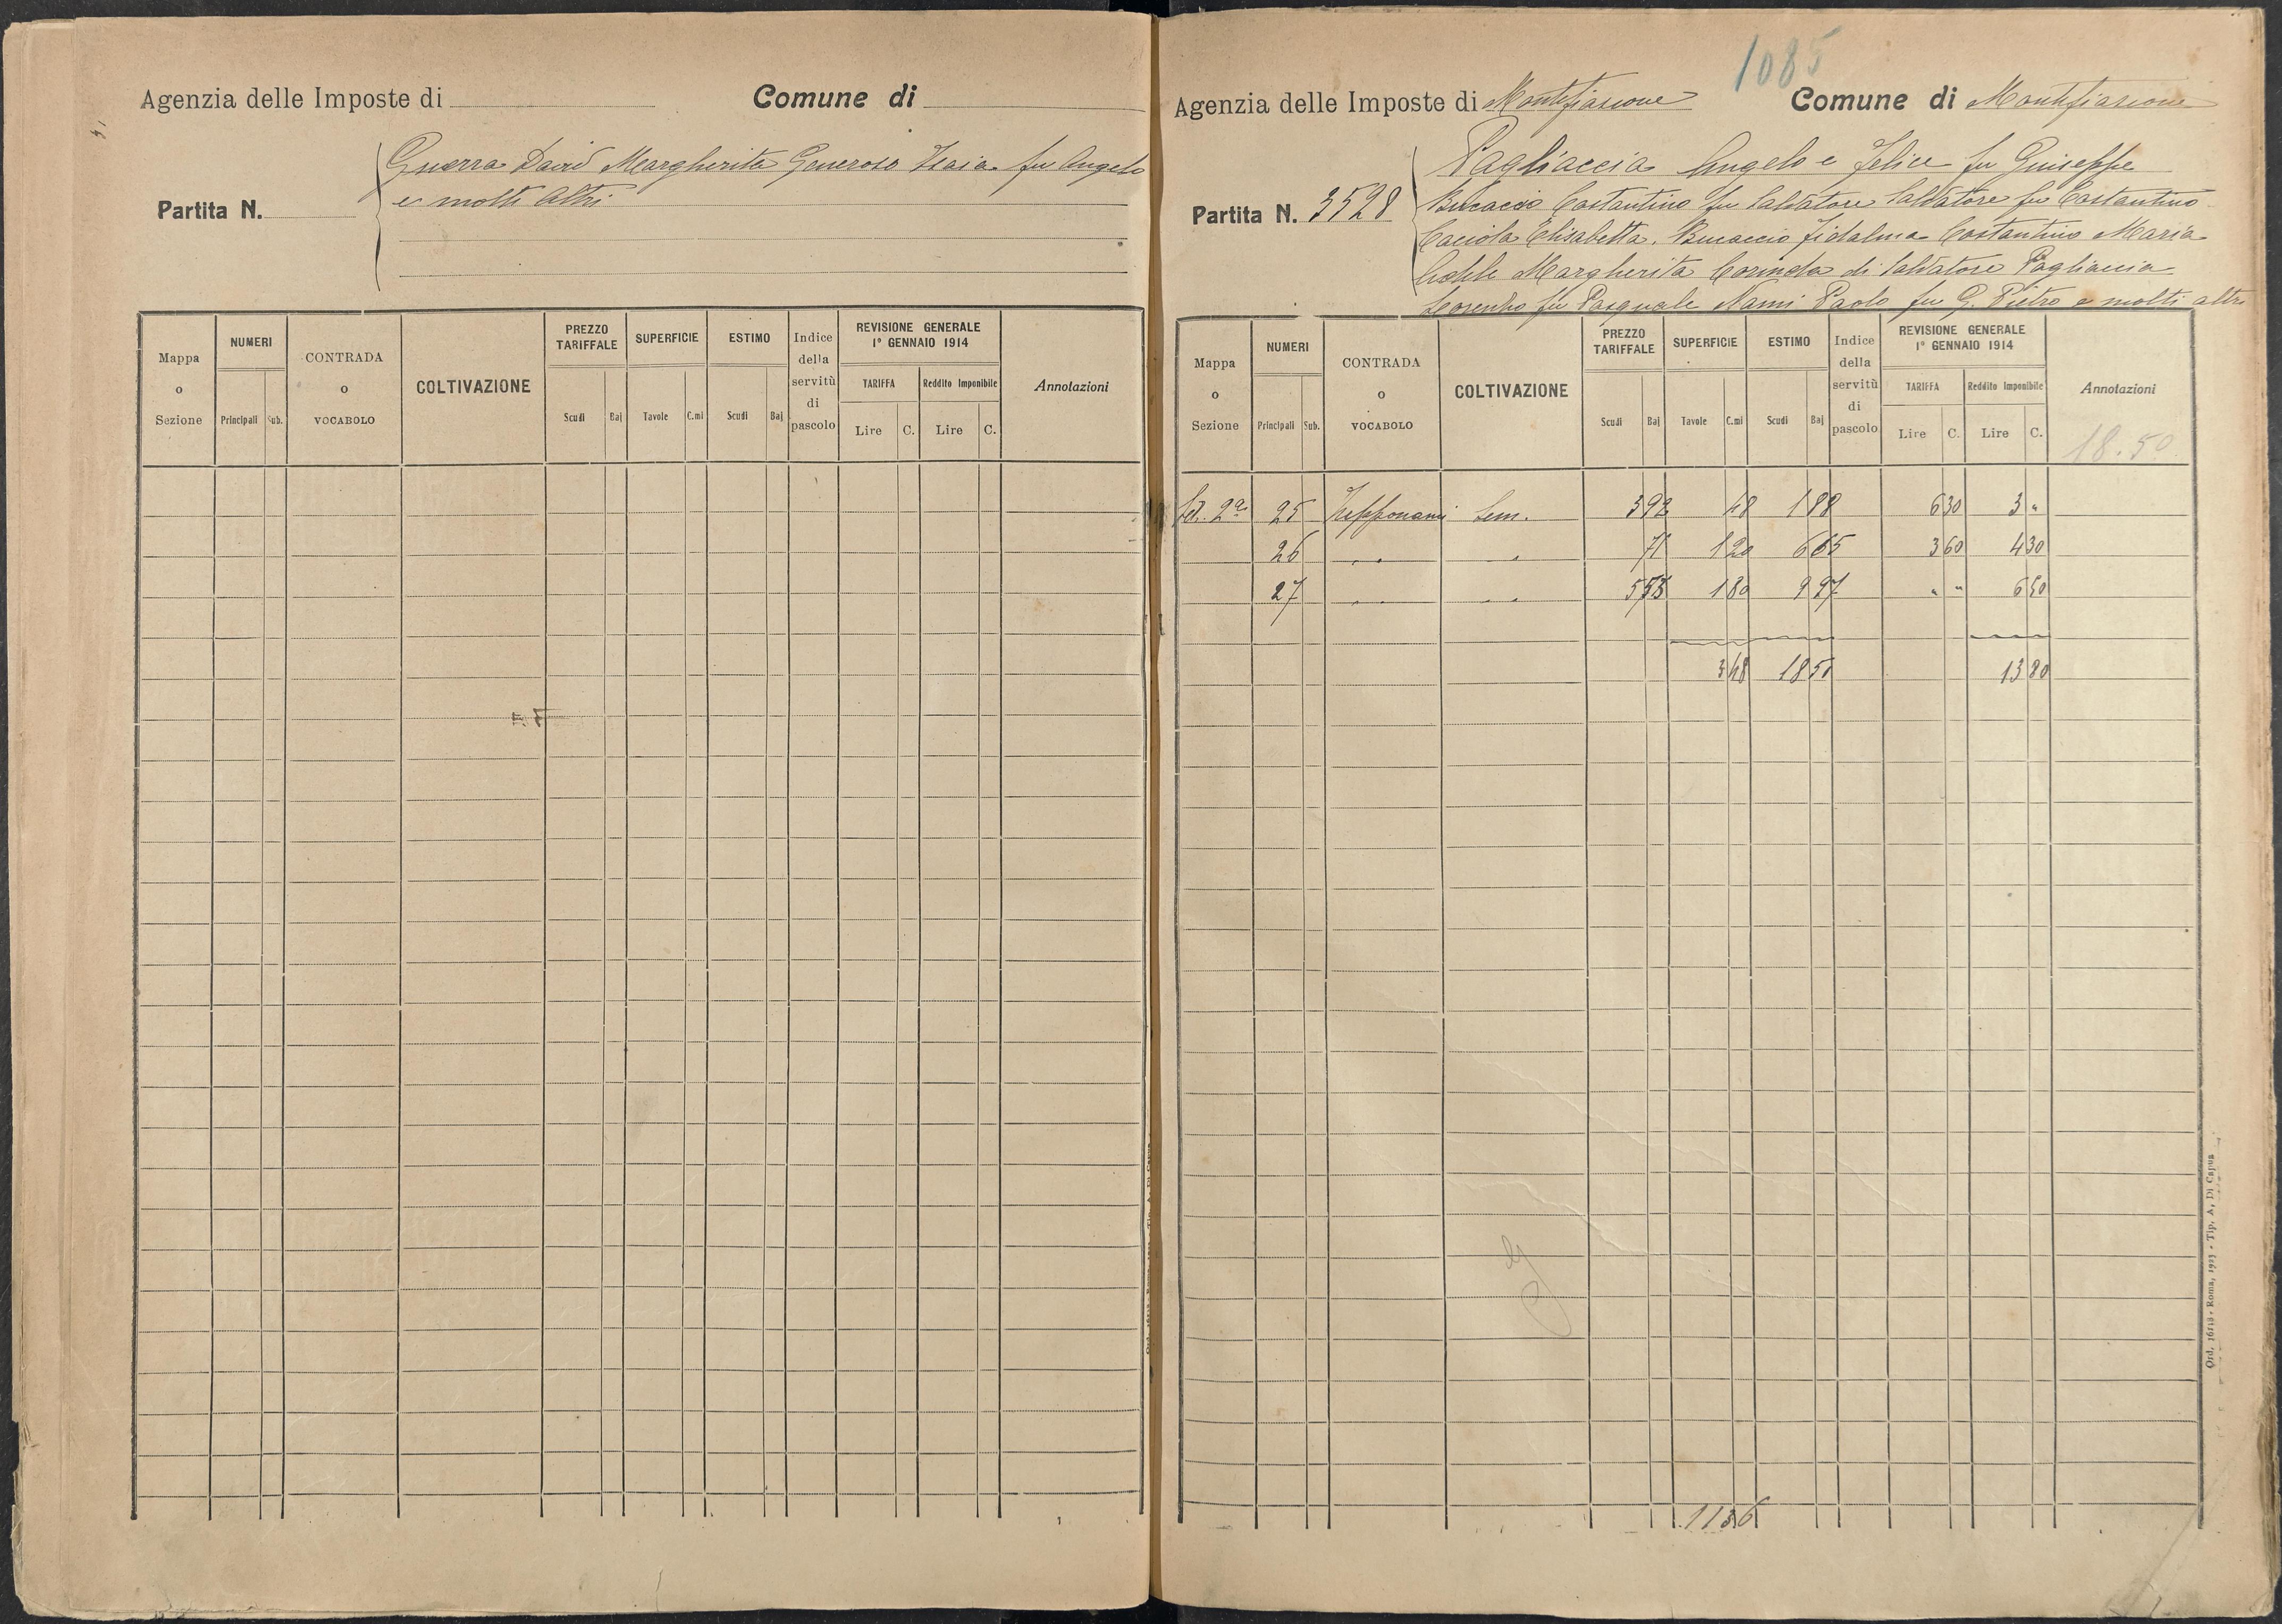 Agenzia delle Imposte di Comune di
Guerra David Margherita Generoso Isaia fu Angelo
e molti altri
Partita N.
Mappa o Sezione NUMERI Principali Sub. CONTRADA o VOCABOLO COLTIVAZIONE PREZZO TARIFFALE Scudi Baj SUPERFICIE Tavole C.mi ESTIMO Scudi Baj Indice della servitù di pascolo REVISIONE GENERALE 1° GENNAIO 1914 TARIFFA Lire C. Reddito Imponibile Lire C. Annotazioni
1085
Agenzia delle Imposte di Montefiascone Comune di Montefiascone
Pagliaccia Angelo e Felice fu Giuseppe
Partita N. 3528
Bucaccio Costantino fu Salvatore Salvatore fu Costantino
Caciola Elisabetta, Bucaccio Fidalma Costantino Maria
Adele Margherita Corinda di Salvatore Pagliaccia
Lorenzo fu Pasquale Nanni Paolo fu G. Pietro e molti altri
Mappa o Sezione NUMERI Principali Sub. CONTRADA o VOCABOLO COLTIVAZIONE PREZZO TARIFFALE Scudi Baj SUPERFICIE Tavole C.mi ESTIMO Scudi Baj Indice della servitù di pascolo REVISIONE GENERALE 1° GENNAIO 1914 TARIFFA Lire C. Reddito Imponibile Lire C. Annotazioni
18.50
2a 25 Zepponami Sem. 3 92 48 1 88 6 30 3 "
26 " " " 71 1 20 6 65 3 60 4 30
27 " " " 5 55 1 80 9 97 " " 6 50
3 48 18 50 13 80
1136
Ord. 16118 - Roma, 1923 - Tip. A. Di Capua